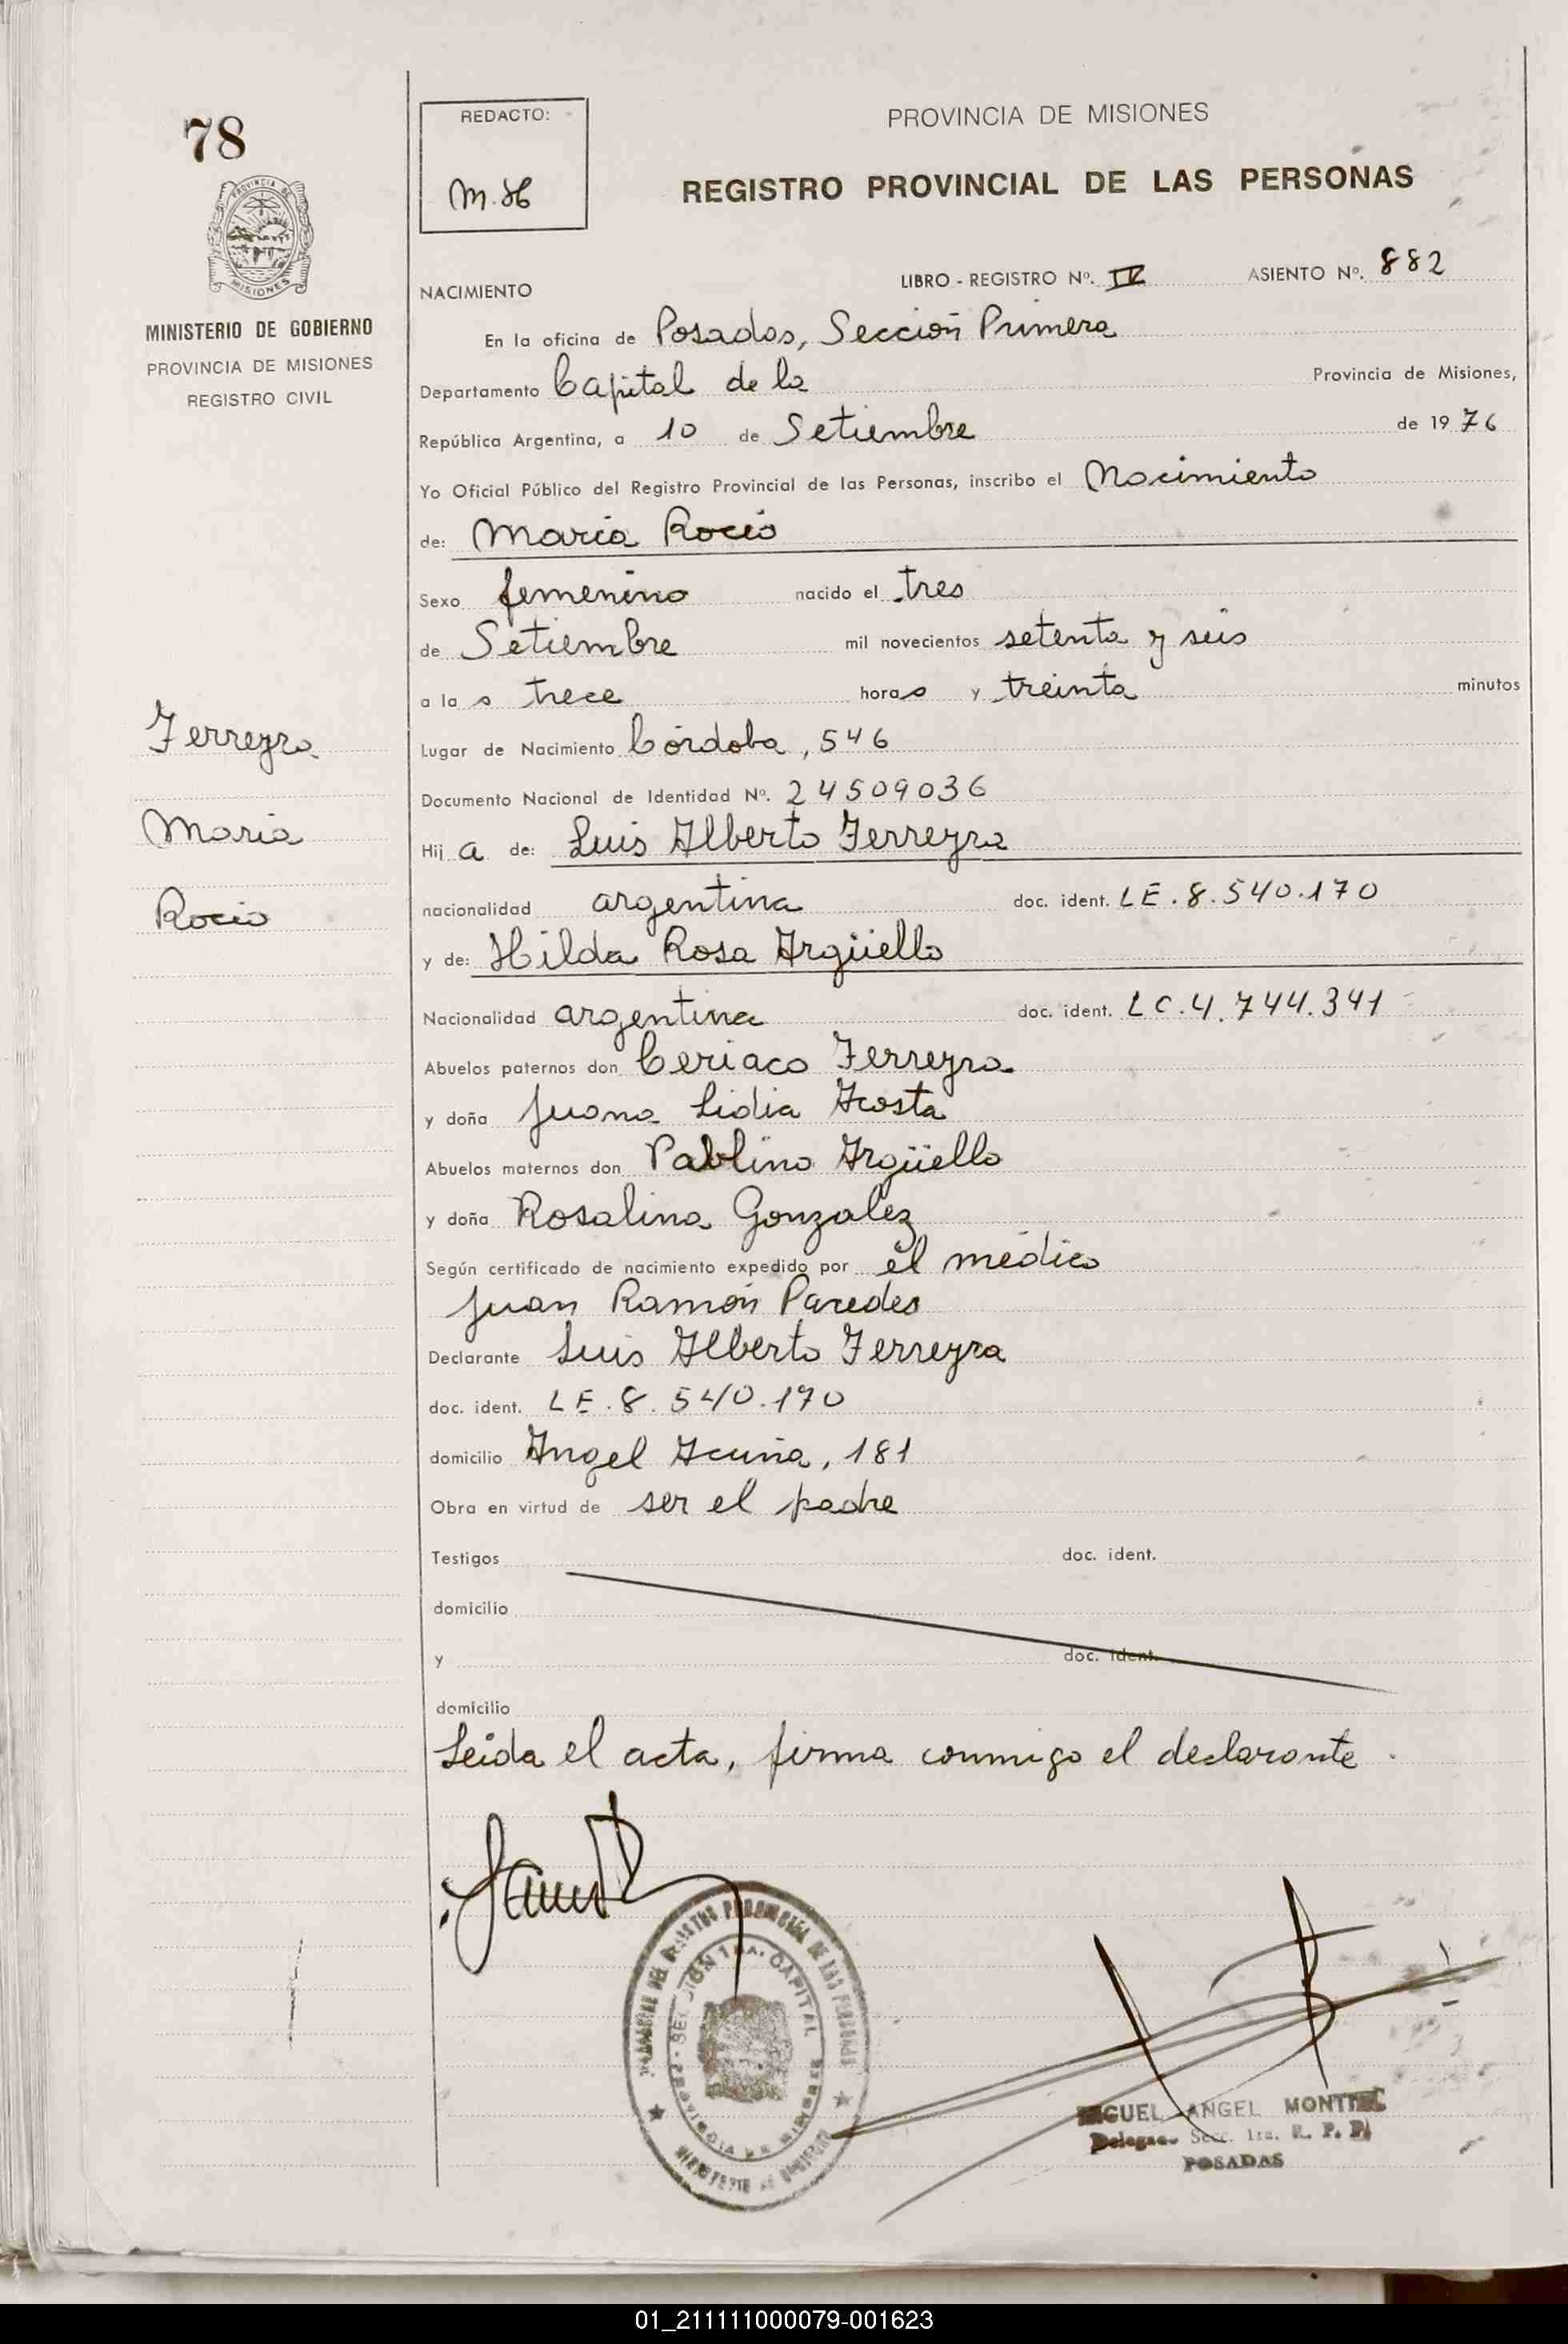 78
PROVINCIA DE
MISIONES
MINISTERIO DE GOBIERNO
PROVINCIA DE MISIONES
REGISTRO CIVIL
Ferreyra
Maria
Rocio
REDACTO:
M.H
PROVINCIA DE MISIONES
REGISTRO PROVINCIAL DE LAS PERSONAS
NACIMIENTO LIBRO - REGISTRO Nº. IV ASIENTO Nº. 882
En la oficina de Posadas, Sección Primera
Departamento Capital de la Provincia de Misiones,
República Argentina, a 10 de Setiembre de 1976
Yo Oficial Público del Registro Provincial de las Personas, inscribo el Nacimiento
de: María Rocío
Sexo femenino nacido el tres
de Setiembre mil novecientos setenta y seis
a la s trece horas y treinta minutos
Lugar de Nacimiento Córdoba, 546
Documento Nacional de Identidad Nº. 24509036
Hij a de: Luis Alberto Ferreyra
nacionalidad argentina doc. ident. LE.8.540.170
y de: Hilda Rosa Argüello
Nacionalidad argentina doc. ident. LC.4.744.341
Abuelos paternos don Ceriaco Ferreyra
y doña Juana Lidia Acosta
Abuelos maternos don Pablino Argüello
y doña Rosalina Gonzalez
Según certificado de nacimiento expedido por el médico
Juan Ramón Paredes
Declarante Luis Alberto Ferreyra
doc. ident. LE.8.540.170
domicilio Angel Acuña, 181
Obra en virtud de ser el padre
Testigos doc. ident.
domicilio
y doc. ident.
domicilio
Leída el acta, firma conmigo el declarante.
PROVINCIAL DE LAS PERSONAS
SECCION 1RA. CAPITAL
PROVINCIA DE MISIONES
MIGUEL ANGEL MONTIEL
Delegado Secc. 1ra. R. P. P.
POSADAS
01_211111000079-001623